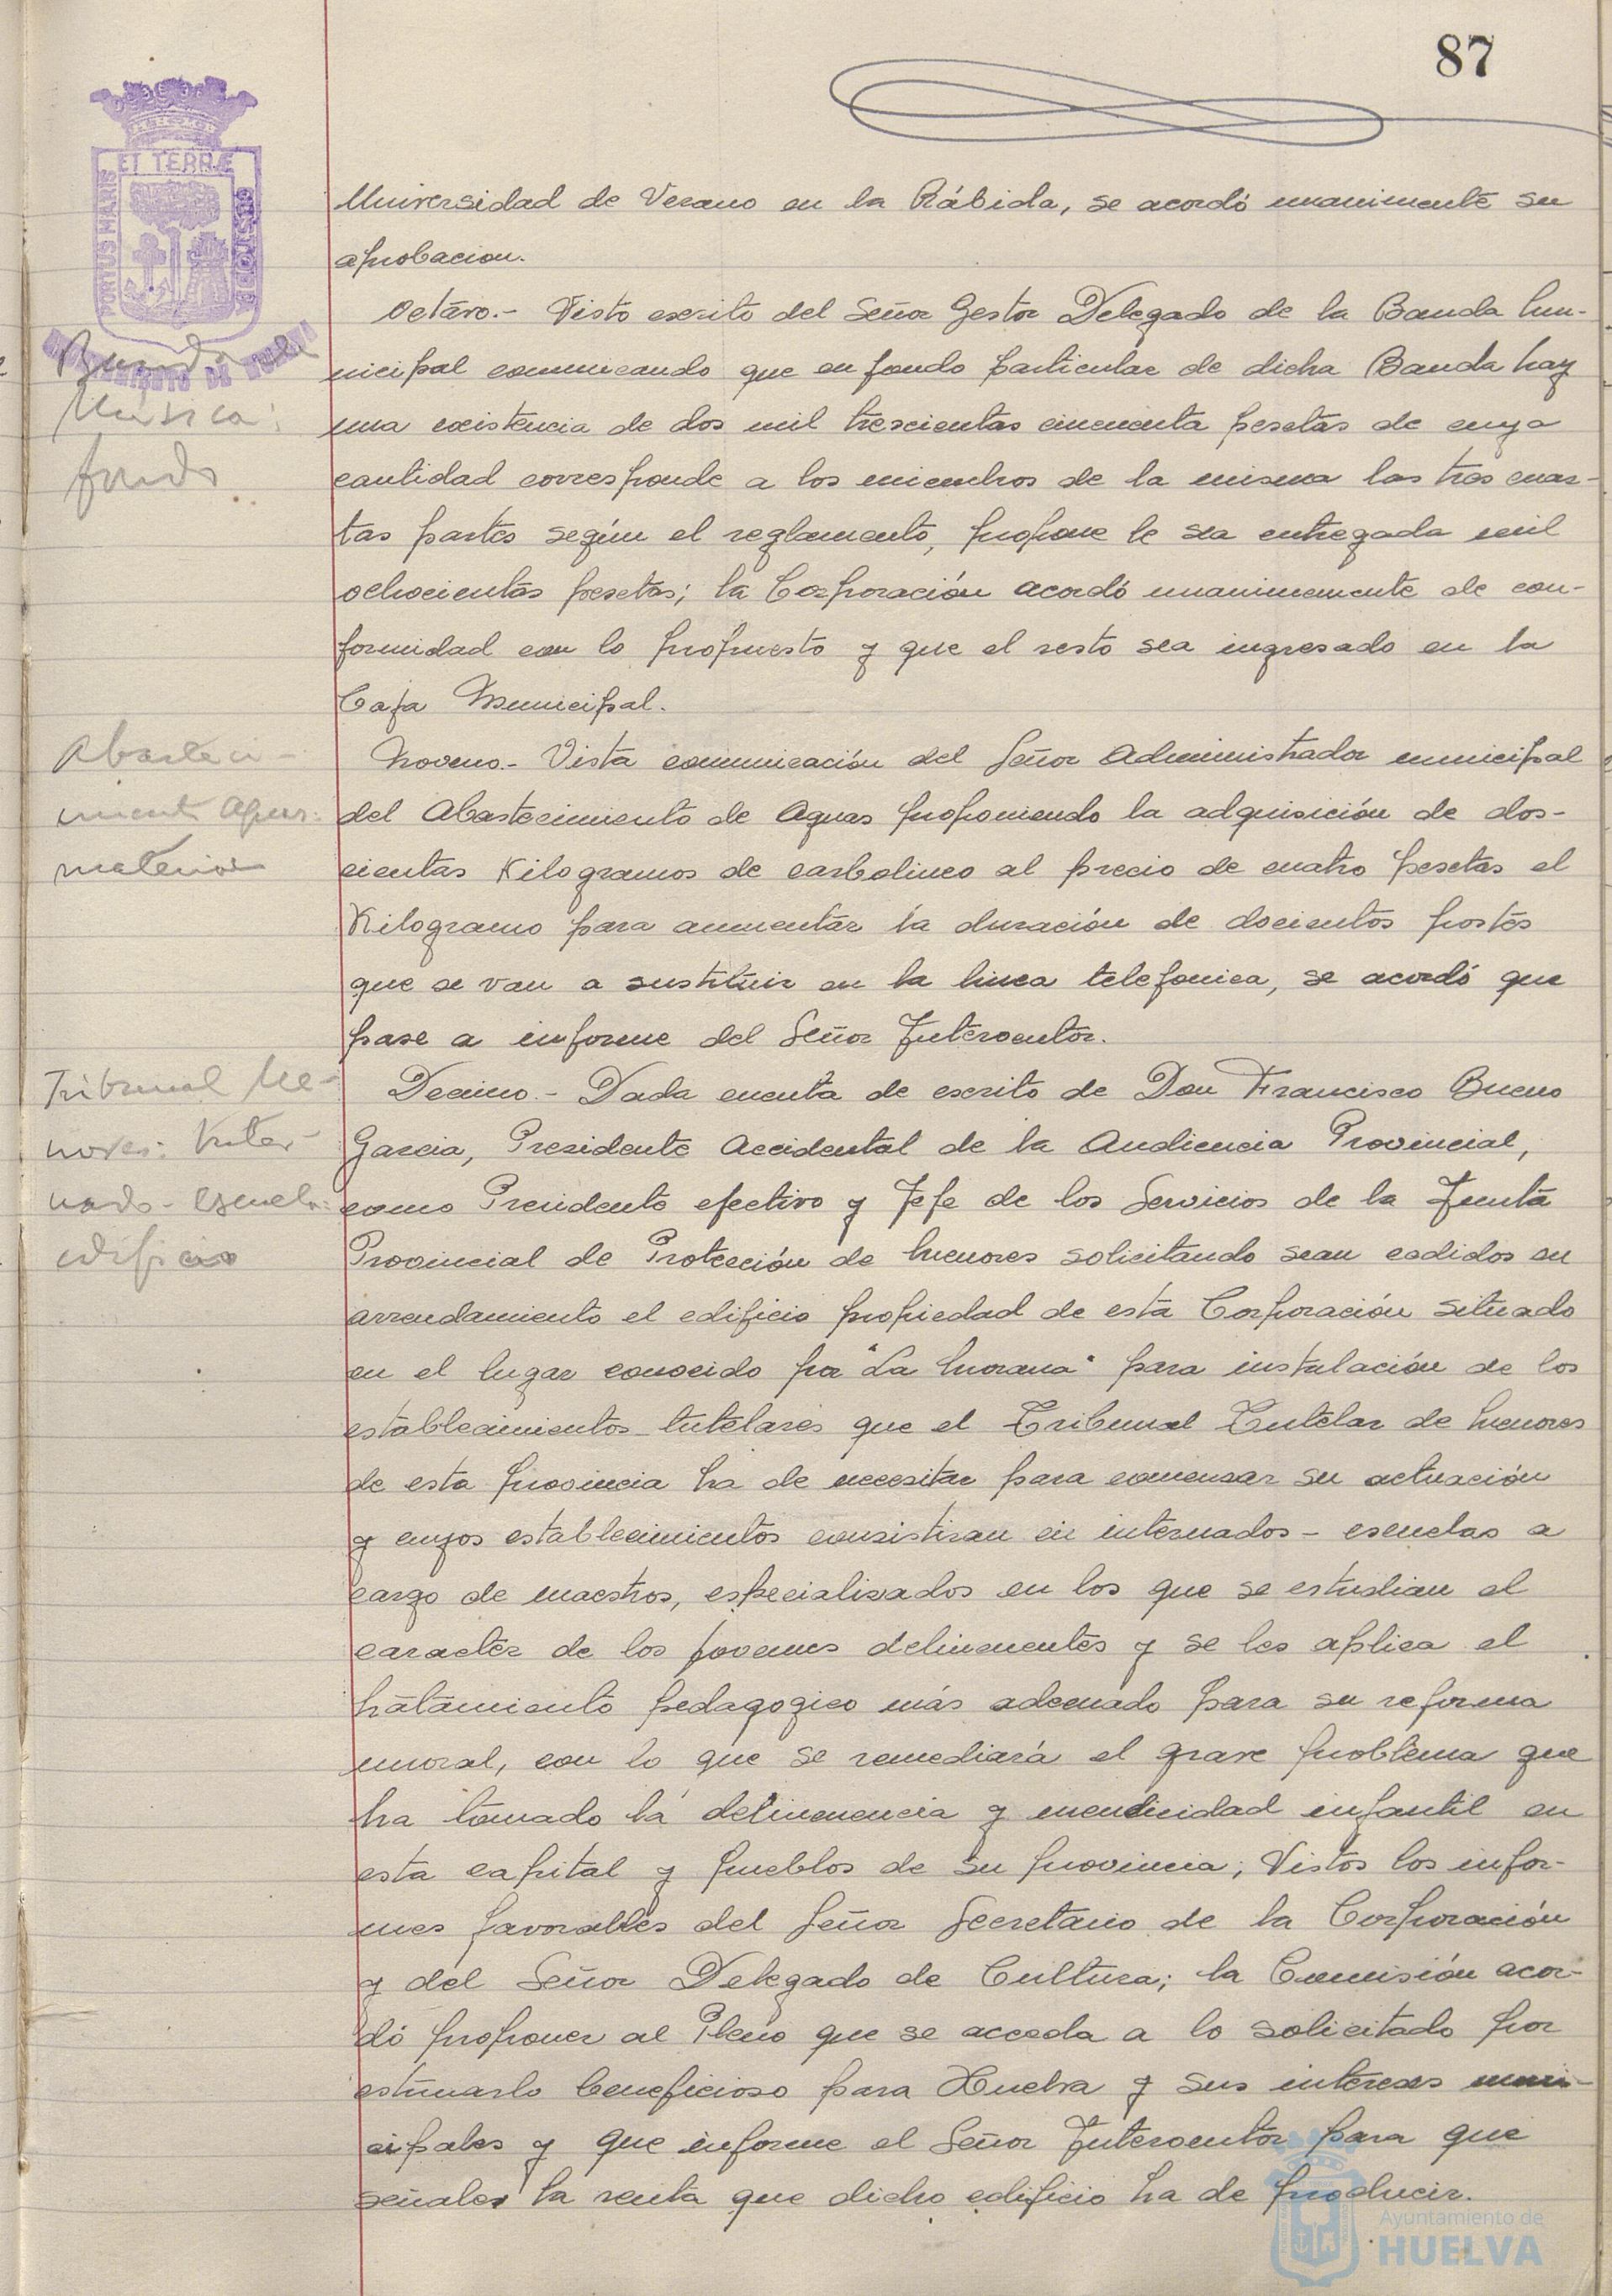 87
PORTUS MARIS
ET TERRÆ
CUSTODIA
AYUNTAMIENTO DE HUELVA
Universidad de Verano en la Rábida, se acordó unanimente su
aprobacion.
Octavo.- Visto escrito del Señor Gestor Delegado de la Banda Mu-
Banda de
Música:
fondo
nicipal comunicando que en fondo particular de dicha Banda hay
una existencia de dos mil trescientas cincuenta pesetas de cuya
cantidad corresponde a los miembros de la misma las tres cuar-
tas partes según el reglamento, propone le sea entregada mil
ochocientas pesetas; la Corporación acordó unanimemente de con-
formidad con lo propuesto y que el resto sea ingresado en la
Caja Municipal.
Abasteci-
miento Aguas:
material
Noveno.- Vista comunicación del Señor Administrador municipal
del Abastecimiento de Aguas proponiendo la adquisición de dos-
cientas Kilogramos de carbolineo al precio de cuatro pesetas el
Kilogramo para aumentar la duración de docientos postes
que se van a sustituir en la linea telefonica, se acordó que
pase a informe del Señor Interventor.
Tribunal Me-
nores: Inter-
nado-escuela:
edificio
Decimo.- Dada cuenta de escrito de Don Francisco Bueno
Garcia, Presidente Accidental de la Audiencia Provincial,
como Presidente efectivo y Jefe de los Servicios de la Junta
Provincial de Protección de Menores solicitando sean cedidos en
arrendamiento el edificio propiedad de esta Corporación situado
en el lugar conocido por "La Morana" para instalación de los
establecimientos tutelares que el Tribunal Tutelar de Menores
de esta provincia ha de necesitar para comensar su actuación
y cuyos establecimientos consistiran en internados - escuelas a
cargo de maestros, especialisados en los que se estudian el
caracter de los jovenes delincuentes y se les aplica el
tratamiento pedagogico más adecuado para su reforma
moral, con lo que se remediará el grave problema que
ha tomado la delincuencia y mendicidad infantil en
esta capital y pueblos de su provincia; Vistos los infor-
mes favorables del Señor Secretario de la Corporación
y del Señor Delegado de Cultura; la Comisión acor-
dó proponer al Pleno que se acceda a lo solicitado por
estimarlo beneficioso para Huelva y sus intereses muni-
cipales y que informe el Señor Interventor para que
señale la renta que dicho edificio ha de producir.
Ayuntamiento de
HUELVA